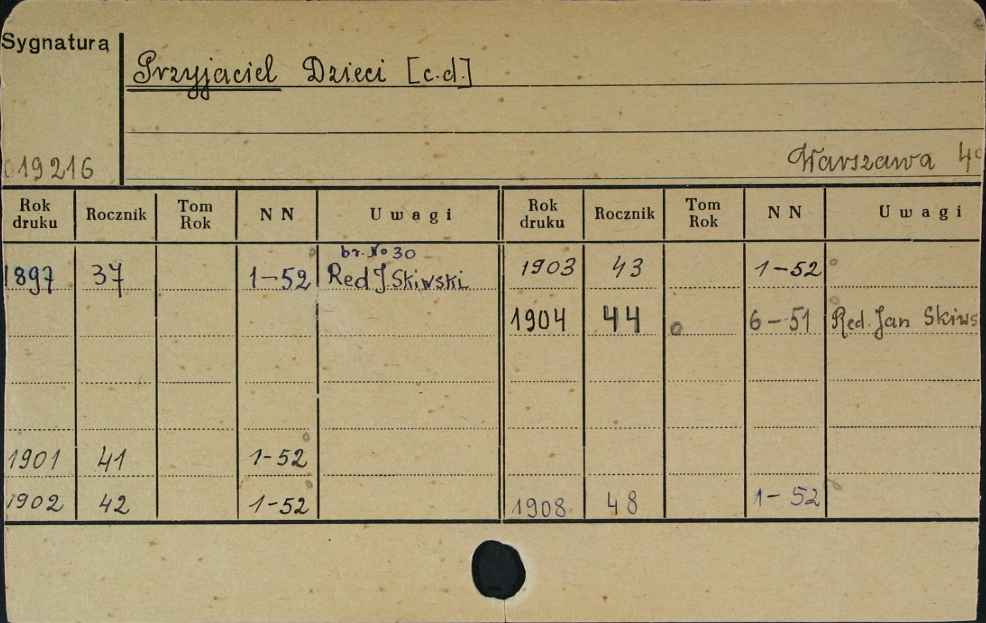 Sygnatura
Przyjaciel Dzieci [c.d.]
019216
Warszawa 4°
Rok druku Rocznik Tom Rok NN Uwagi Rok druku Rocznik Tom Rok NN Uwagi
br. No 30
1897 37 1-52 Red J. Skiwski 1903 43 1-52
1904 44 6-51 Red. Jan Skiws
1901 41 1-52
1902 42 1-52 1908 48 1-52